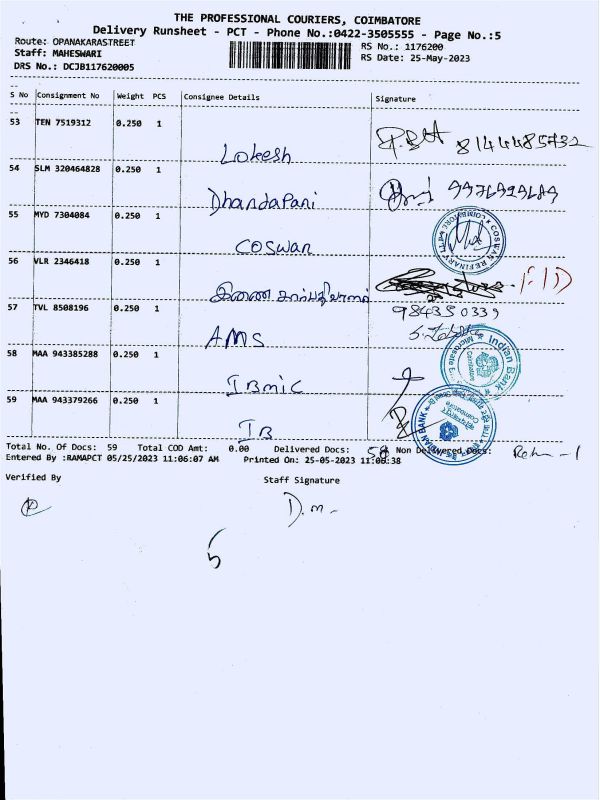 THE PROFESSIONAL COURIERS, COIMBATORE
Delivery Runsheet - PCT - Phone No.:0422-3505555 - Page No.:5
Route: OPANAKARASTREET RS No.: 1176200
Staff: MAHESWARI RS Date: 25-May-2023
DRS No.: DCJB117620005
S No Consignment No Weight PCS Consignee Details Signature
53 TEN 7519312 0.250 1
Lokesh 8144485732
54 SLM 320464828 0.250 1
Dhandapani 9976929689
55 MYD 7304084 0.250 1
COSWAN COSWAN REFINARY LLP COIMBATORE
56 VLR 2346418 0.250 1
57 TVL 8508196 0.250 1 984350339
AMS
58 MAA 943385288 0.250 1 Indian Bank
IBMIC
59 MAA 943379266 0.250 1
IB INDIAN BANK
Total No. Of Docs: 59 Total COD Amt: 0.00 Delivered Docs: 58 Non Delivered Docs: Retn - 1
Entered By :RAMAPCT 05/25/2023 11:06:07 AM Printed On: 25-05-2023 11:06:38
Verified By Staff Signature
D.m.